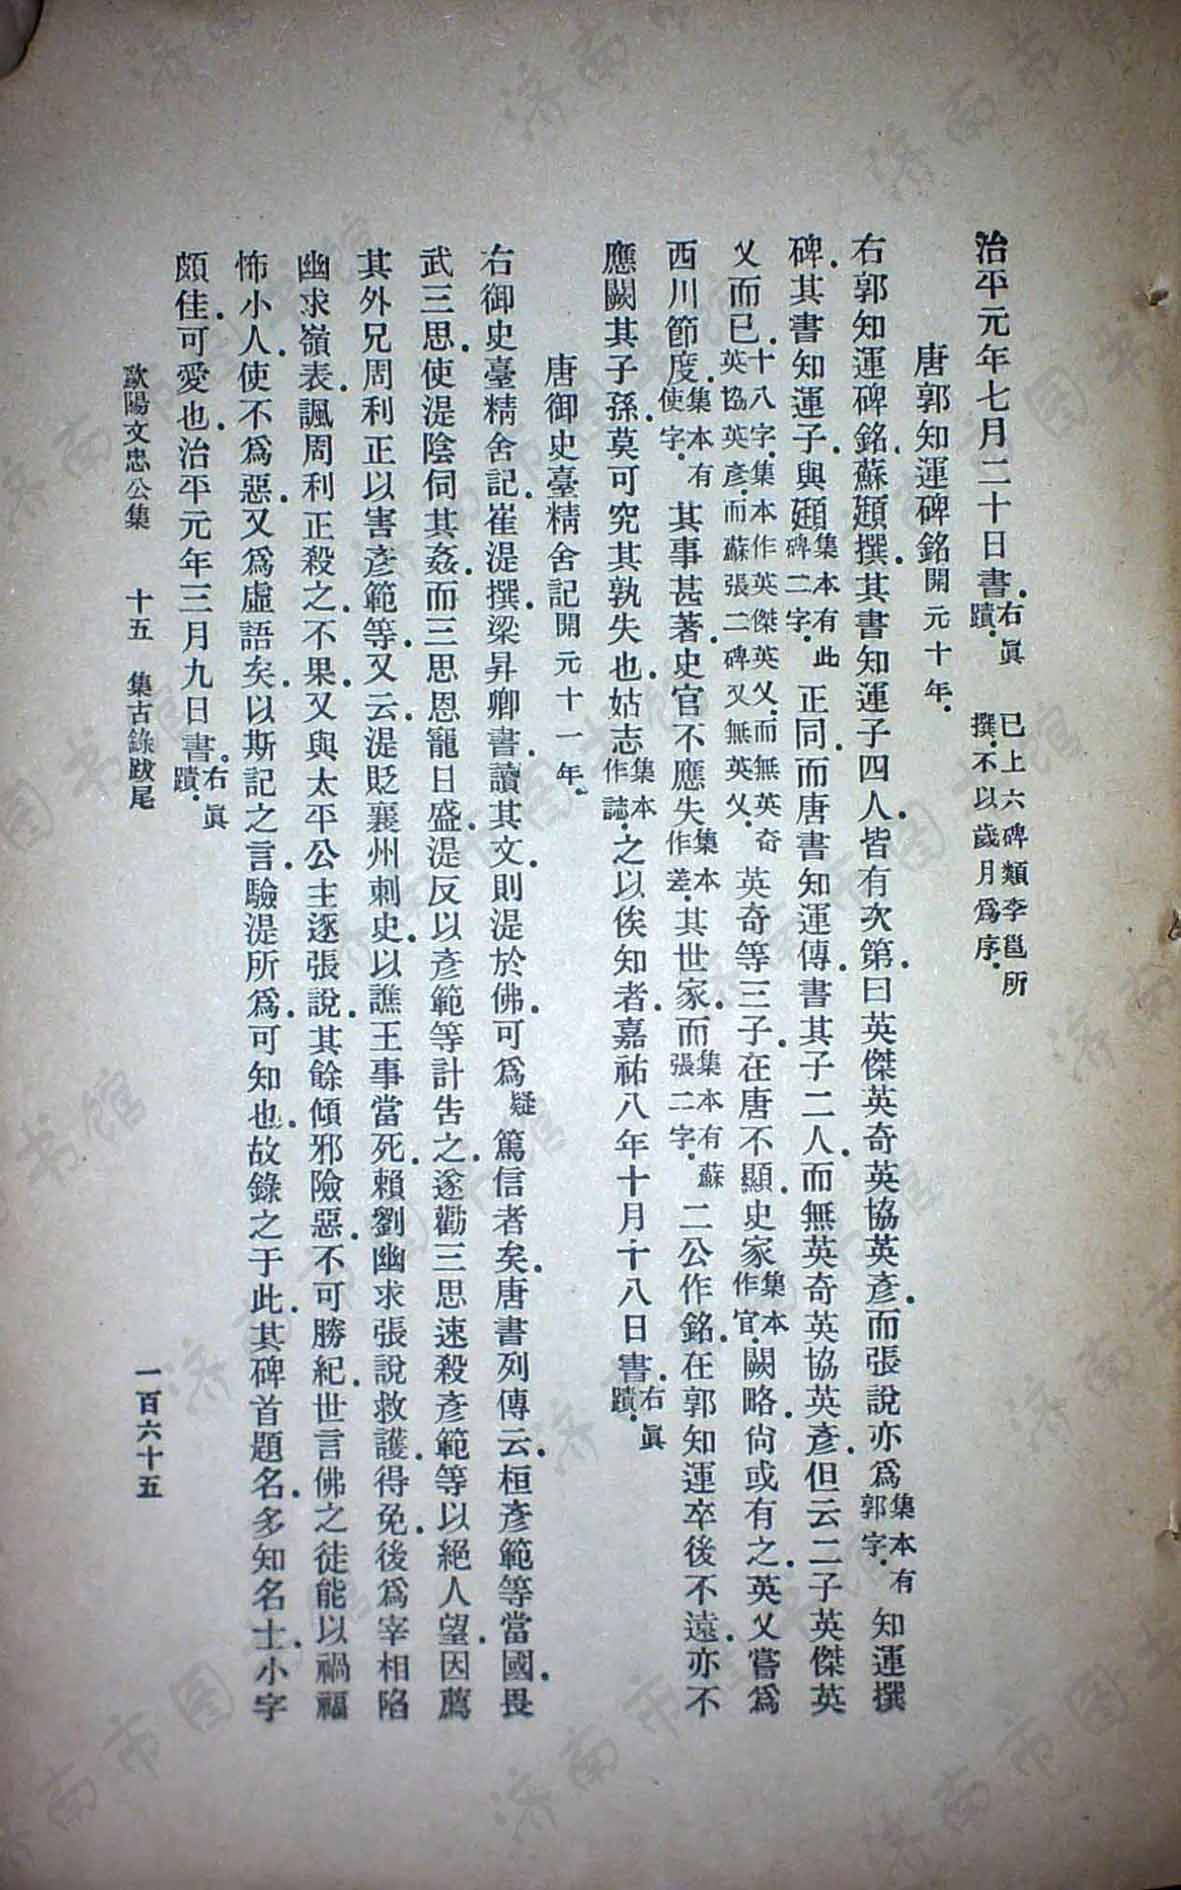 治平元年七月二十日書.右眞蹟.　已上六碑類李邕所撰.不以歲月爲序.
唐郭知運碑銘開元十年.
右郭知運碑銘.蘇頲撰.其書知運子四人.皆有次第.曰英傑英奇英協英彥.而張說亦爲集本有郭字.知運撰
碑.其書知運子.與頲集本有此碑二字.正同.而唐書知運傳.書其子二人.而無英奇英協英彥.但云二子英傑英
乂而已.十八字.集本作英傑英乂.而無英奇英協英彥.而蘇張二碑又無英乂.英奇等三子.在唐不顯.史家集本作官.闕略.尙或有之.英乂嘗爲
西川節度.集本有使字.其事甚著.史官不應失集本作差.其世家.而集本有蘇張二字.二公作銘.在郭知運卒後不遠.亦不
應闕其子孫.莫可究其孰失也.姑志集本作誌.之以俟知者.嘉祐八年十月十八日書.右眞蹟.
唐御史臺精舍記開元十一年.
右御史臺精舍記.崔湜撰.梁昇卿書.讀其文.則湜於佛.可爲疑篤信者矣.唐書列傳云.桓彥範等當國.畏
武三思.使湜陰伺其姦.而三思恩寵日盛.湜反以彥範等計告之.遂勸三思速殺彥範等以絕人望.因薦
其外兄周利正以害彥範等.又云.湜貶襄州刺史.以譙王事當死.賴劉幽求張說救護得免.後爲宰相陷
幽求嶺表.諷周利正殺之.不果.又與太平公主逐張說.其餘傾邪險惡.不可勝紀.世言佛之徒能以禍福
怖小人.使不爲惡.又爲虛語矣.以斯記之言.驗湜所爲.可知也.故錄之于此.其碑首題名.多知名士.小字
頗佳.可愛也.治平元年三月九日書.右眞蹟.
歐陽文忠公集　十五　集古錄跋尾　一百六十五